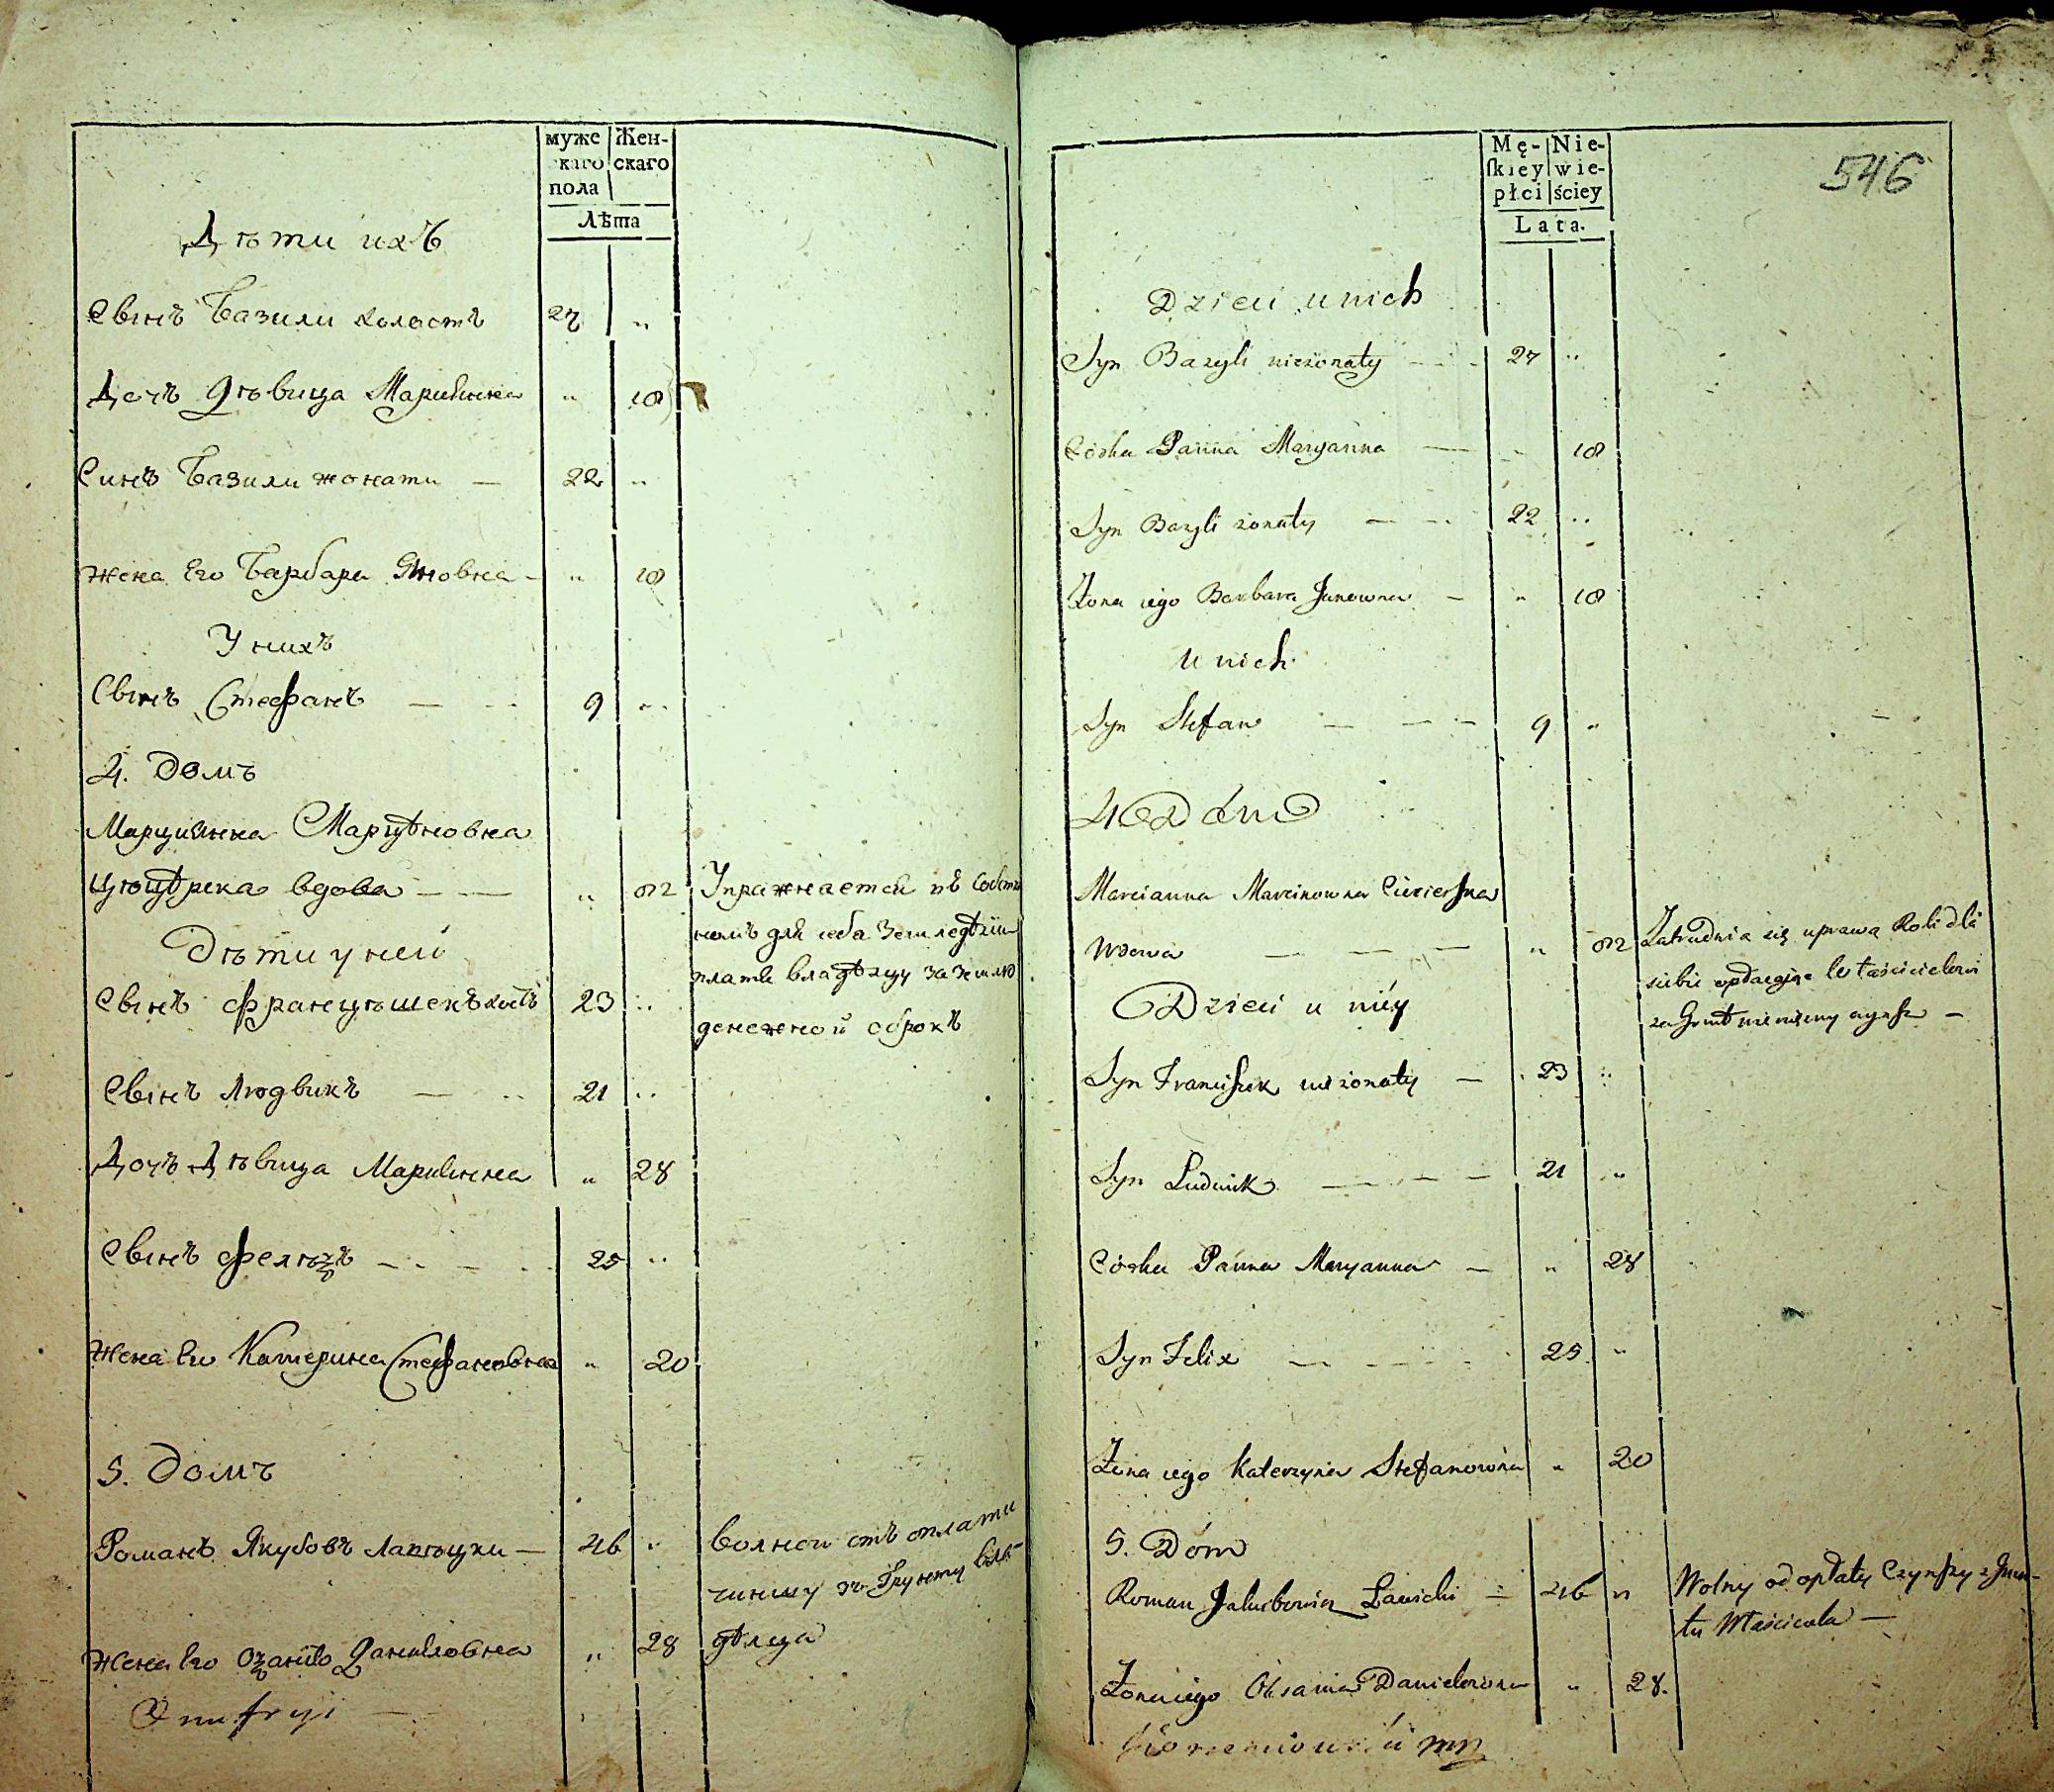 муже
скаго
пола
Жен-
скаго
Лѣта
Дѣти ихъ
Сынъ Базили холостъ 27 "
Дочъ Дѣвица Марианна " 18
Синъ Базили жонати — 22 "
Жена Его Барбара Яновна - " 18
У нихъ
Сынъ Стефанъ — 9 "
4. Домъ
Марцианна Марцѣновна
вдова — " 52 Упражнается въ собст
неннъ для себа Земледѣлии
Дѣти у ней
платя владѣлцу за землю
Сынъ Францишекъ холостъ 23 "
денежной оброкъ
Сынъ Людвикъ — 21 "
Дочъ Дѣвица Марианна " 28
Сынъ Феликъ — 25 "
Жена Его Катерина Стефановна " 20
5. Домъ
Романъ Якубовъ Лавицки — 46 " волной отъ оплати
чиншу зъ Грунту вла-
дѣлца
Жена Его Данилова " 28
Onufryi
Mę-
skiey
płci
Nie-
wie-
ściey
Lata.
546
Dzieci u nich
Syn Bazyli nieżonaty — 27 "
Córka Panna Maryanna — " 18
Syn Bazyli żonaty — 22 "
Żona iego Barbara Janowna — " 18
u nich
Syn Stefan — 9 "
4 Dóm
Marcianna Marcinowna
Wdowa — " 52 Zatrudnia się uprawą Roli dla
siebie opłacając Właścicielowi
Dzieci u niéy
za Grunt pieniężny czynsz —
Syn Franciszek nieżonaty — 23 "
Syn Ludwik — 21 "
Córka Panna Maryanna — " 28
Syn Felix — 25 "
Żona iego Katerzyna Stefanowna " 20
5. Dóm
Roman Jakubowicz Lawicki — 46 " Wolny od opłaty Czynszy z Grun-
tu Właściciela —
Żona iego Oksania Danielowna " 28.